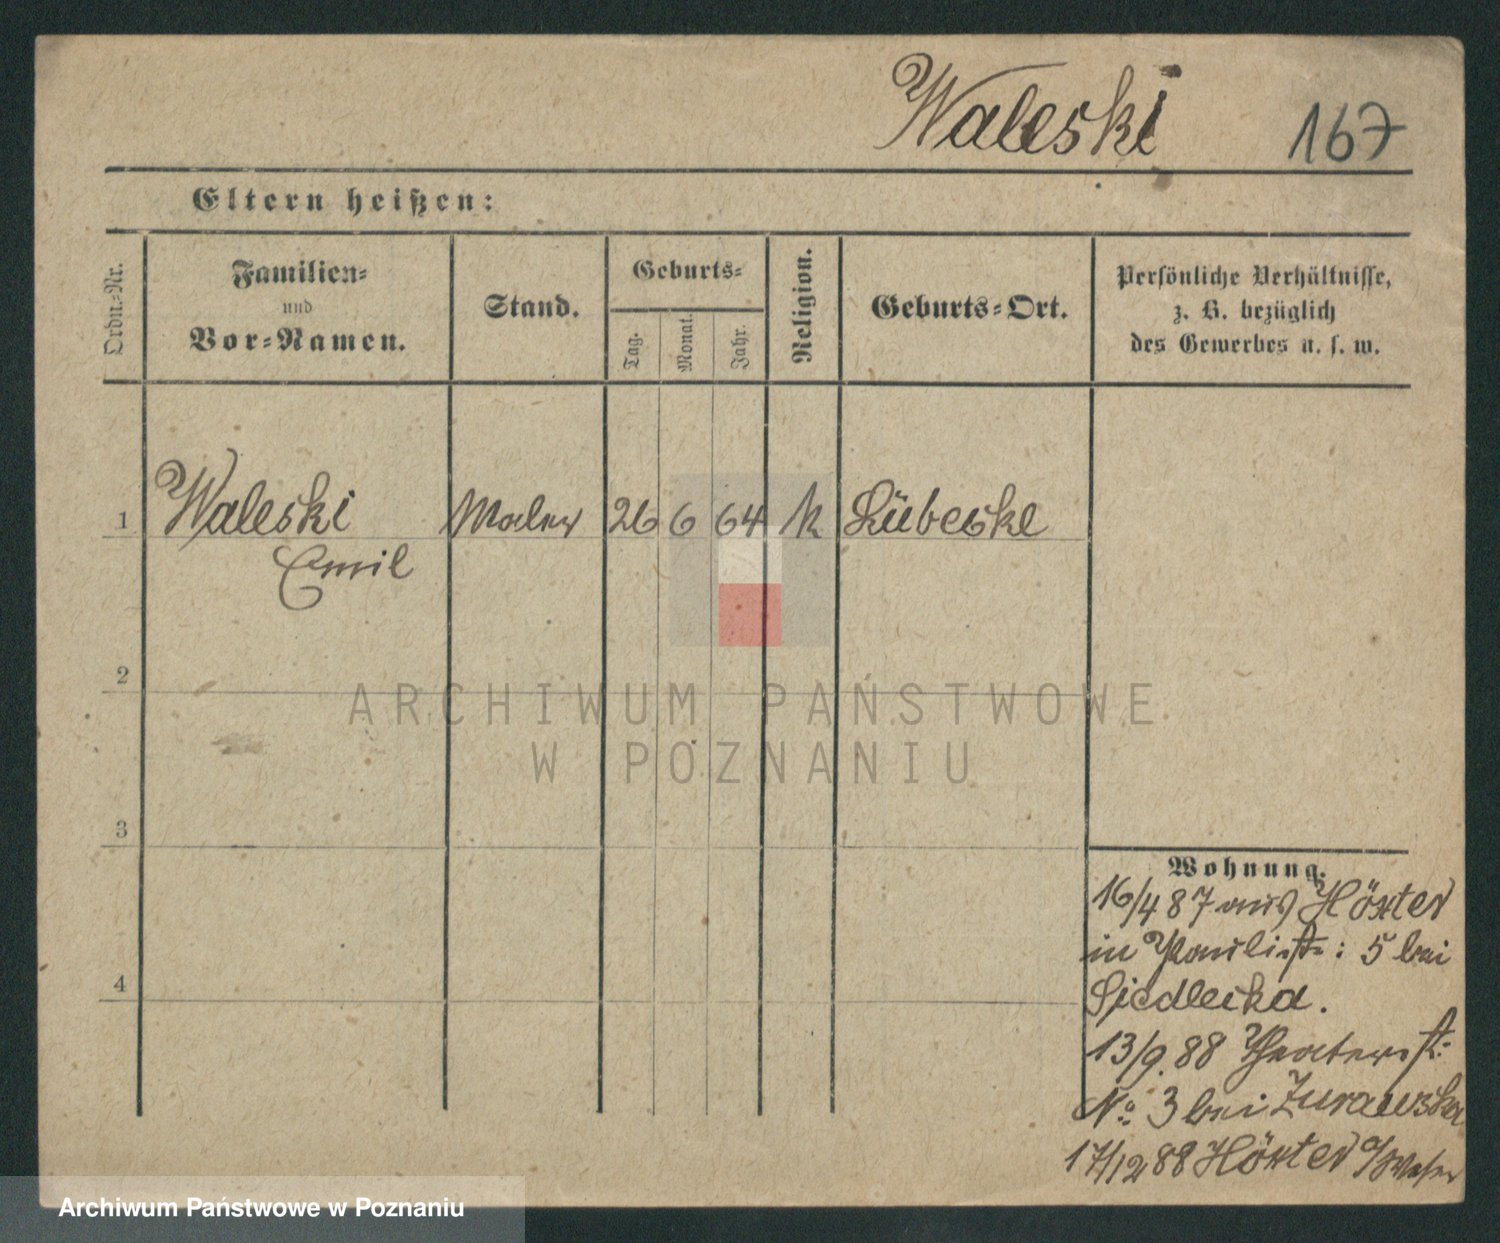 Waleski 167
Eltern heißen:
Ordn.=Nr.
Familien=
und
Vor=Namen.
Stand.
Geburts=
Tag. Monat. Jahr.
Religion.
Geburts=Ort.
Persönliche Verhältnisse,
z. B. bezüglich
des Gewerbes u. s. w.
1 Waleski Maler 26 6 64 k Lübecke
Emil
2
3
4
Wohnung.
16/4 87 aus Höxter
in Paulist: 5 bei
Siedlecka.
13/9. 88 Theaterst:
No: 3 bei Zurawska
17/12 88 Höxter a/Weser
ARCHIWUM PAŃSTWOWE
W POZNANIU
Archiwum Państwowe w Poznaniu